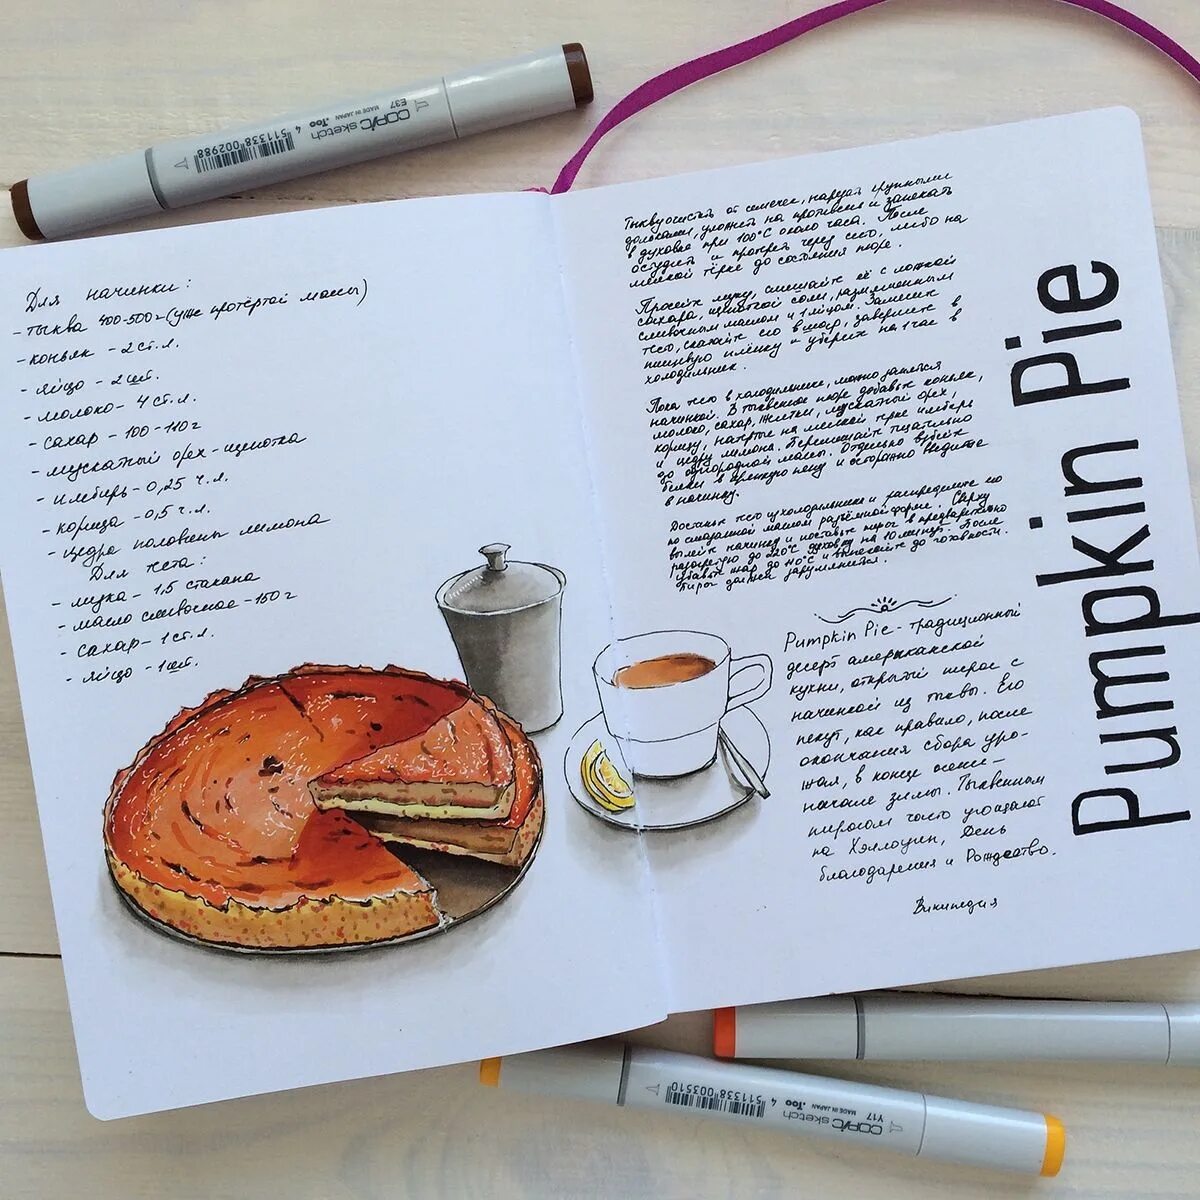 Для начинки:
- тыква 400-500г (уже протёртой массы)
- коньяк - 2 ст.л.
- яйцо - 2 шт.
- молоко - 4 ст.л.
- сахар - 100-110г
- мускатный орех - щепотка
- имбирь - 0,25 ч.л.
- корица - 0,5 ч.л.
- цедра половины лимона
Для теста:
- мука - 1,5 стакана
- масло сливочное - 150г
- сахар - 1 ст.л.
- яйцо - 1 шт.
Тыкву очистить от семечек, нарезать крупными
дольками, уложить на противень и запекать
в духовке при 100°С около часа. После
остудить и протереть через сито, либо на
мелкой тёрке до состояния пюре.
Просейте муку, смешайте её с ложкой
сахара, щепоткой соли, размягчённым
сливочным маслом и 1 яйцом. Замесите
тесто, скатайте его в шар, заверните в
пищевую плёнку и уберите на 1 час в
холодильник.
Пока тесто в холодильнике, можно заняться
начинкой. В тыквенное пюре добавьте коньяк,
молоко, сахар, желтки, мускатный орех,
корицу, натёртые на мелкой тёрке имбирь
и цедру лимона. Перемешайте тщательно
до однородной массы. Отдельно взбейте
белки в крепкую пену и осторожно введите
в начинку.
Достаньте тесто из холодильника и распределите его
по смазанной маслом разъёмной форме. Сверху
вылейте начинку и поставьте пирог в предварительно
разогретую до 220°С духовку на 10 минут. После
убавьте жар до и выпекайте до готовности.
Пирог должен зарумяниться.
Pumpkin Pie - традиционный
десерт американской
кухни, открытый пирог с
начинкой из тыквы. Его
пекут, как правило, после
окончания сбора уро-
жая, в конце осени -
начале зимы. Тыквенным
пирогом часто угощают
на Хэллоуин, День
благодарения и Рождество.
Википедия
Pumpkin Pie
COPIC sketch
MADE IN JAPAN
E37
.Too
4 511338 002988
COPIC sketch
MADE IN JAPAN
Y17
.Too
4 511338 003510